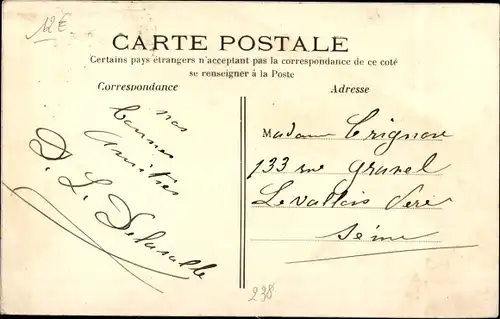 12€
CARTE POSTALE
Certains pays étrangers n'acceptent pas la correspondance de ce coté
se renseigner à la Poste
Correspondance
Adresse
nos
bonnes
amitiés
D. L. Delasalle
Madame
133 rue
Levallois Peret
Seine
238